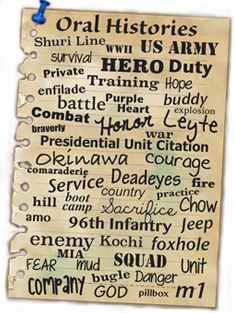 Oral Histories
Shuri Line WWII US ARMY
survival HERO Duty
Private Training Hope
enfilade battle Purple Heart buddy
explosion
Combat Honor Leyte
braverly war
Presidential Unit Citation
Okinawa Courage
comaraderie Deadeyes fire
Service country practice
hill boot camp Sacrifice Chow
amo 96th Infantry Jeep
enemy Kochi foxhole
MIA SQUAD Unit
FEAR mud Danger
company bugle GOD pillbox m1